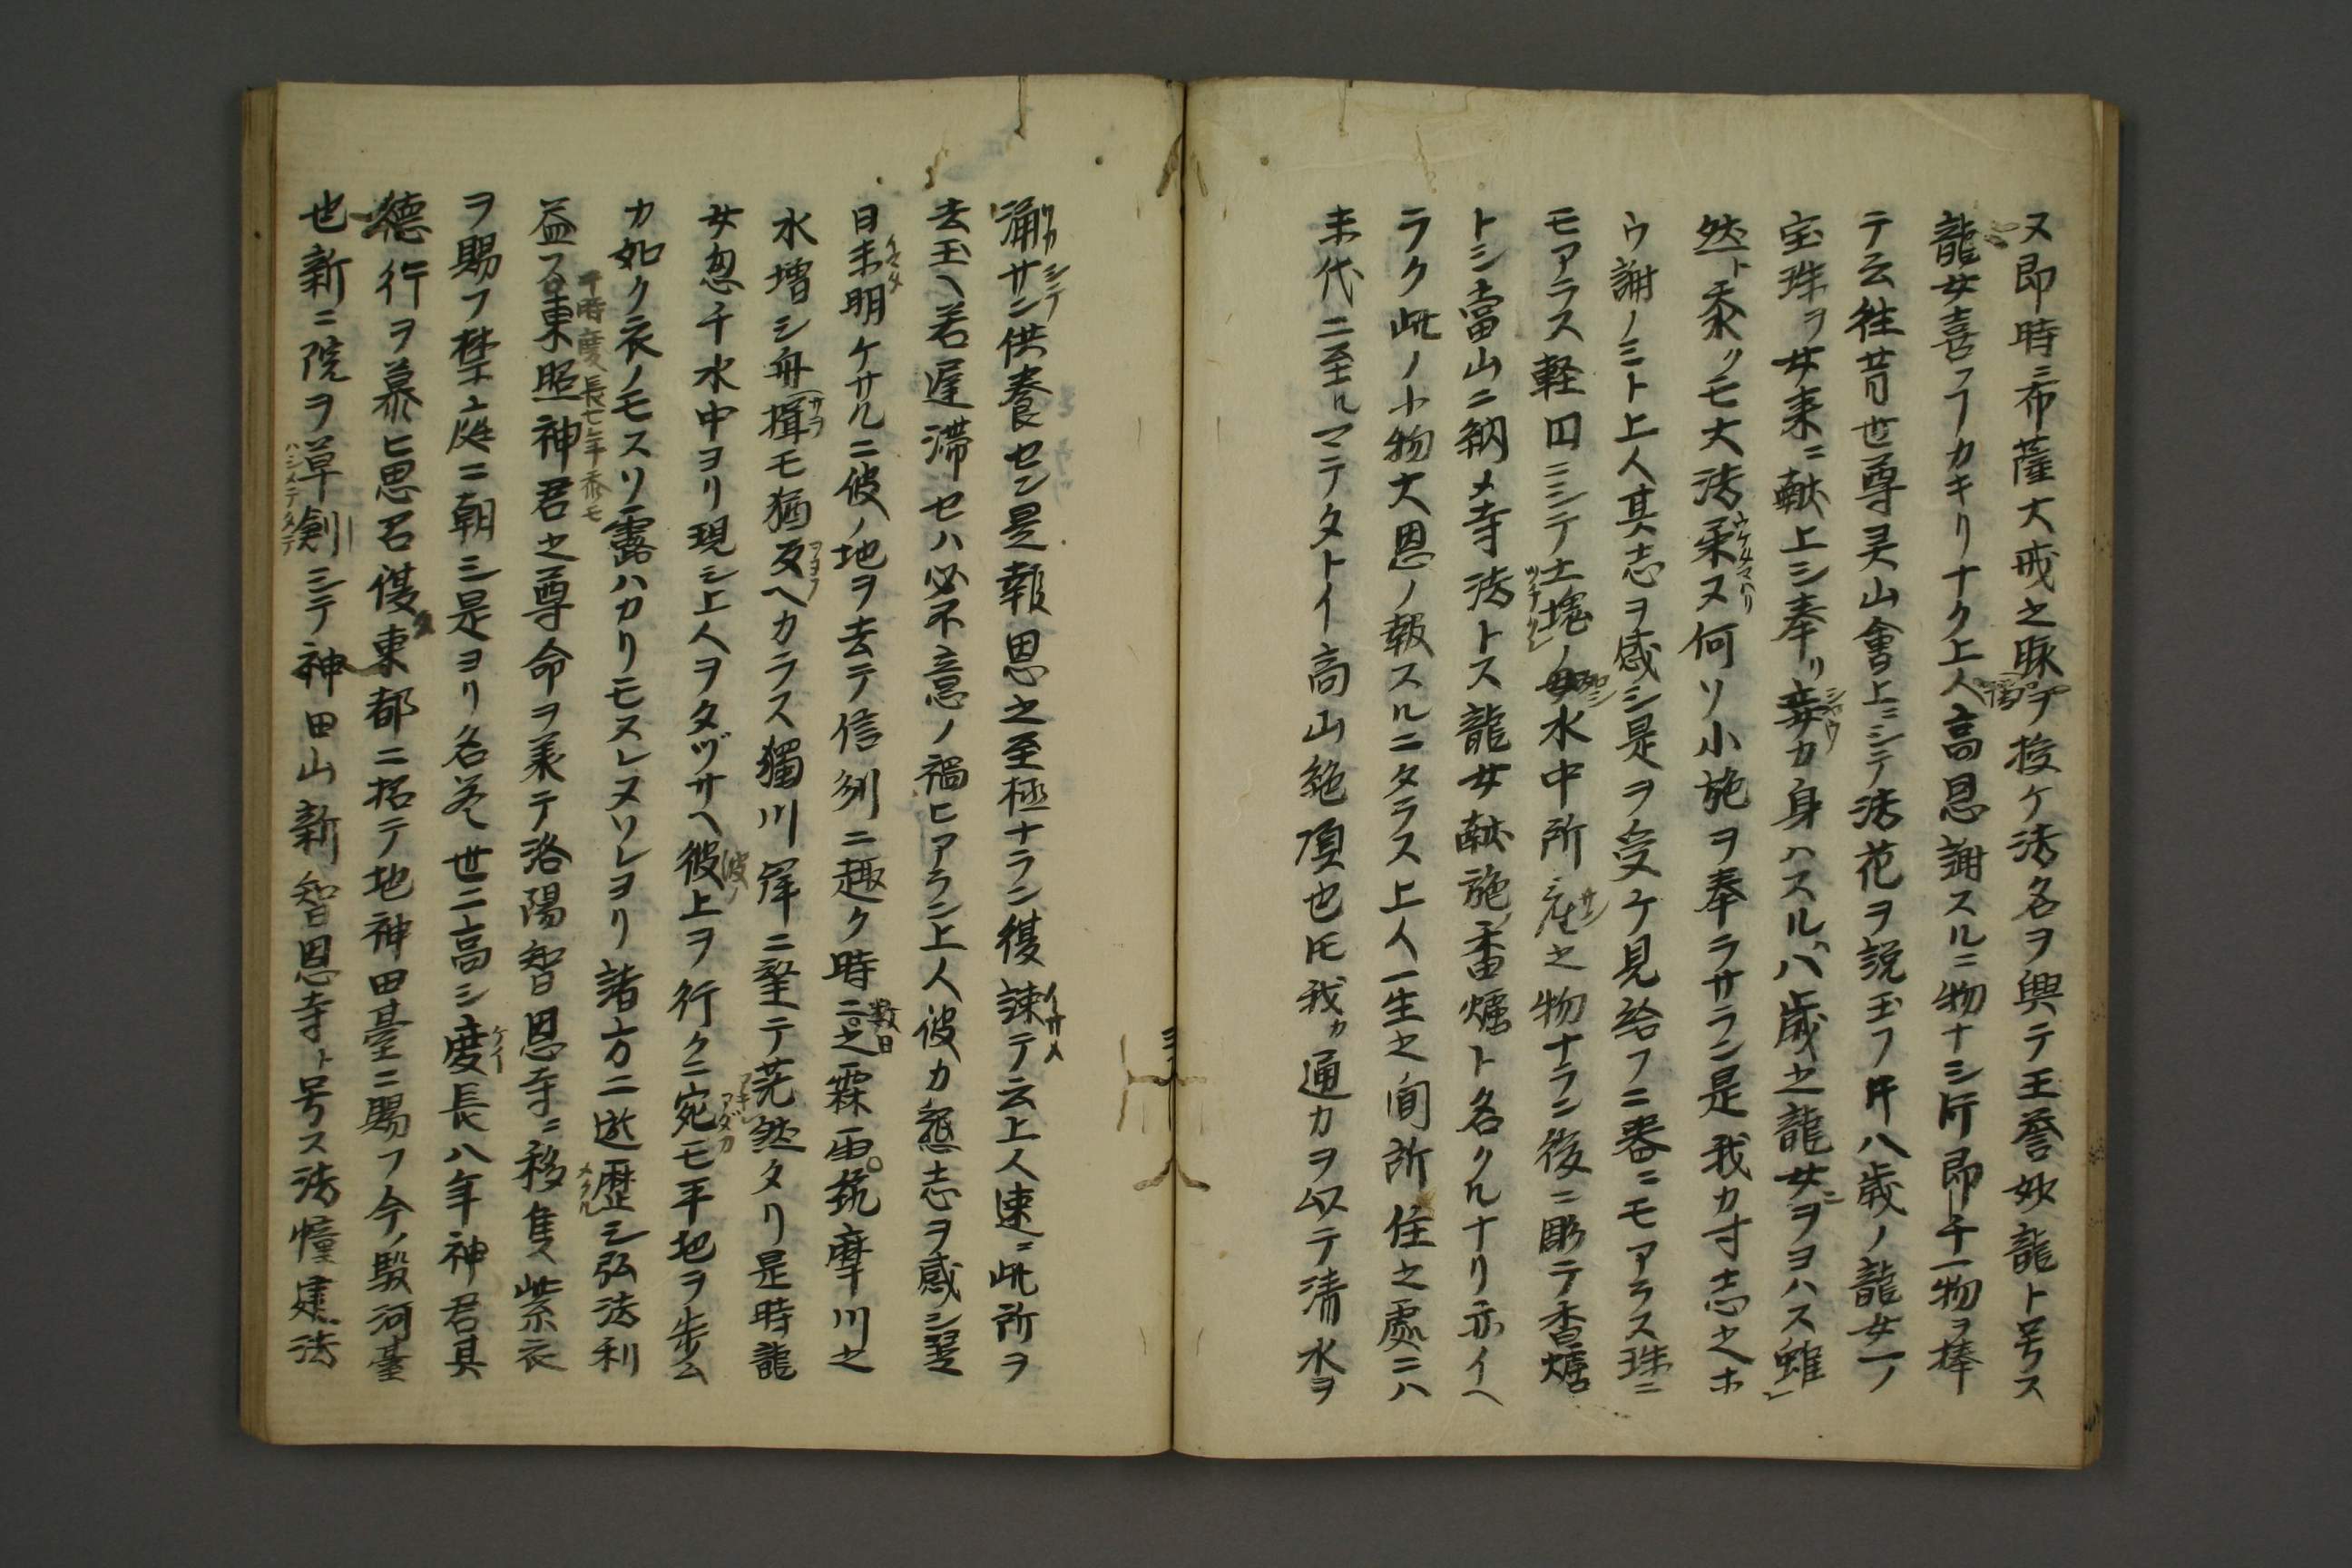 ヌ即時ニ布薩大戒之脉ヲ授ケ法名ヲ與テ王誉妙龍ト号ス
龍女喜フカキリナク上人高恩謝スルニ物ナシ所即チ一物ヲ捧
テ云往昔世尊灵山會上ニシテ法花ヲ説玉フ所八歳ノ龍女一ノ
宝珠ヲ女来ニ献上シ奉リ妾カ身ハスル八歳之龍女ニヲヨハス雖
然ト忝クモ大法ヲ承ヌ何ソ小施ヲ奉ラサラン是我カ寸志之ホ
ウ謝ノミト上人其志ヲ感シ是ヲ受ケ見給フニ器ニモアラス珠ニ
モアラス軽回ニシテ土塊ノ如シ水中所産之物ナラン後ニ彫テ香爐
トシ當山ニ納メ寺法トス龍女献施ノ香爐ト名クルナリ亦イヘ
ラク此ノ小物大恩ノ報スルニタラス上人一生之間所住之處ニハ
末代ニ至ルマテタトイ高山絶頂也圧我カ通力ヲ以テ清水ヲ
涌サン供養セン是報恩之至極ナラン復諫テ云上人速ニ此所ヲ
去玉ヘ若遅滞セハ必不意ノ禍ヒアラン上人彼カ懇志ヲ感シ翌
日未明ケサルニ彼ノ地ヲ去テ信州ニ趣ク時ニ数日之霖雨筑摩川之
水増シ舟揖モ猶及ヘカラス獨川岸ニ望テ茫然タリ是時龍
女忽チ水中ヨリ現シ上人ヲタヅサヘ彼上ヲ行クニ宛モ平地ヲ歩ム
カ如ク衣ノモスソ露ハカリモスレヌソレヨリ諸方ニ遊歴シ弘法利
益ス于時慶長七年忝モ東照神君之尊命ヲ承テ洛陽智恩寺ニ移隻ス紫衣
ヲ賜フ禁庭ニ朝シ是ヨリ名益世ニ高シ慶長八年神君其
徳行ヲ慕ヒ思召復東都ニ招テ地神田臺ニ賜フ今ノ駿河臺
也新ニ院ヲ草創シテ神田山新智恩寺ト号ス法幢建法